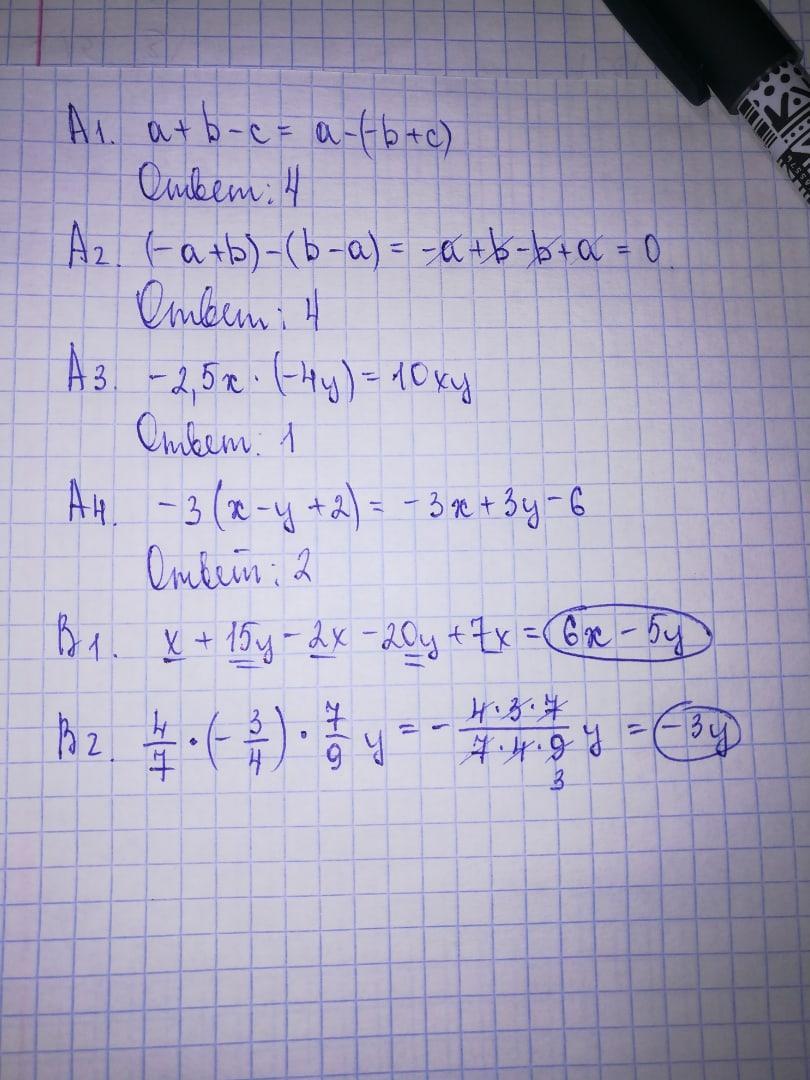 А1. a + b - c = a - (-b + c)
Ответ: 4
А2. (-a + b) - (b - a) = -a + b - b + a = 0.
Ответ: 4
А3. -2,5x · (-4y) = 10xy
Ответ: 1
А4. -3(x - y + 2) = -3x + 3y - 6
Ответ: 2
В1. x + 15y - 2x - 20y + 7x = 6x - 5y
В2. 4/7 · (-3/4) · 7/9 y = - 4·3·7/7·4·9 y = -3y
3